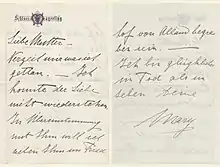 Liebe Mutter –
Verzeih mir was ich
gethan. – Ich
konnte der Liebe
nicht wiederstehen
In Übereinstimmung
mit Ihm will ich
neben Ihm im Fried
hof von Alland begra
ben sein. –
Ich bin glücklicher
im Tod als im
Leben. Deine
Mary